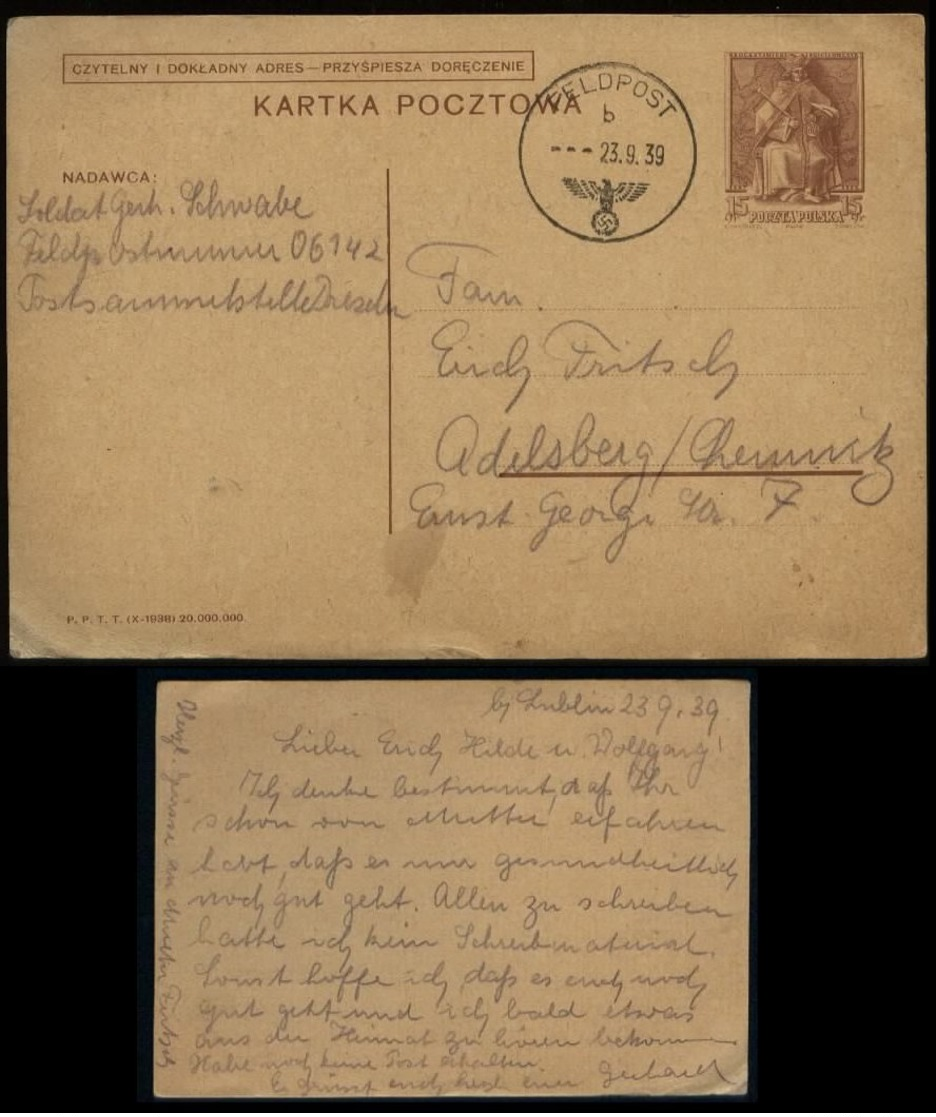 CZYTELNY I DOKŁADNY ADRES—PRZYŚPIESZA DORĘCZENIE
KARTKA POCZTOWA
FELDPOST
b
--- 23.9.39
15 POCZTA POLSKA 15
NADAWCA:
Soldat Gerh. Schwabe
Feldpostnummer 06142
Postsammelstelle Dresden
Fam.
Erich Fritsch
Adelsberg/Chemnitz
Ernst Georg Str. 7
P. P. T. T. (X-1938) 20.000.000.
bj Lublin 23 9. 39.
Lieber Erich Hilde u. Wolfgang!
Ich denke bestimmt, daß Ihr
schon von Mutter erfahren
habt, daß es mir gesundheitlich
noch gut geht. Allen zu schreiben
hatte ich kein Schreibmaterial.
Sonst hoffe ich, daß es euch noch
gut geht und ich bald etwas
aus der Heimat zu hören bekomme
Habe noch keine Post erhalten.
Es grüsst euch herzl. euer Gerhard
Herzl. Grüsse an Mutter Fritsch